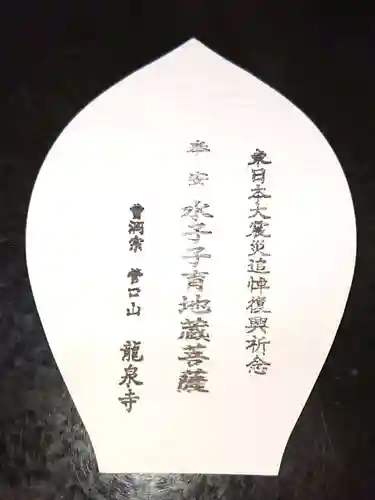 東日本大震災追悼復興祈念
奉安 水子子育地蔵菩薩
曹洞宗 管口山 龍泉寺